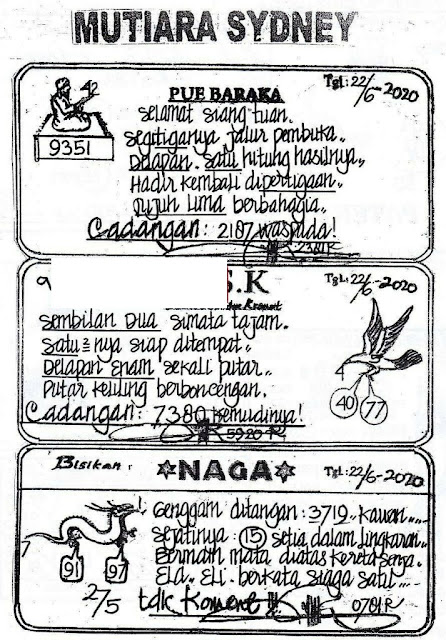 MUTIARA SYDNEY
PUE BARAKA
Tgl: 22/6-2020
42
9351
Selamat siang tuan.
Segitiganya jalur pembuka,,
Delapan. Satu hitung hasilnya,,
Hadir kembali dipertigaan,,
Tujuh Lima berbahagia,,
Cadangan: 2107 Waspada!
2381R
S.K
Tgl: 22/6-2020
Sembilan Dua simata tajam.
Satu=nya siap ditempat,,
Delapan Enam sekali putar,,
Putar keliling berboncengan.
Cadangan: 7380 Kemudinya!
5920 R
40 77
Bisikan:
NAGA
Tgl: 22/6-2020
Genggam ditangan: 3719. Kawan.....
Sejatinya: 15 setia dalam lingkaran..
Bermain mata diatas kereta senja.
Ela. Eli. berkata siaga satu!....
91 97
2/5
tdk Koment !!!
0781R